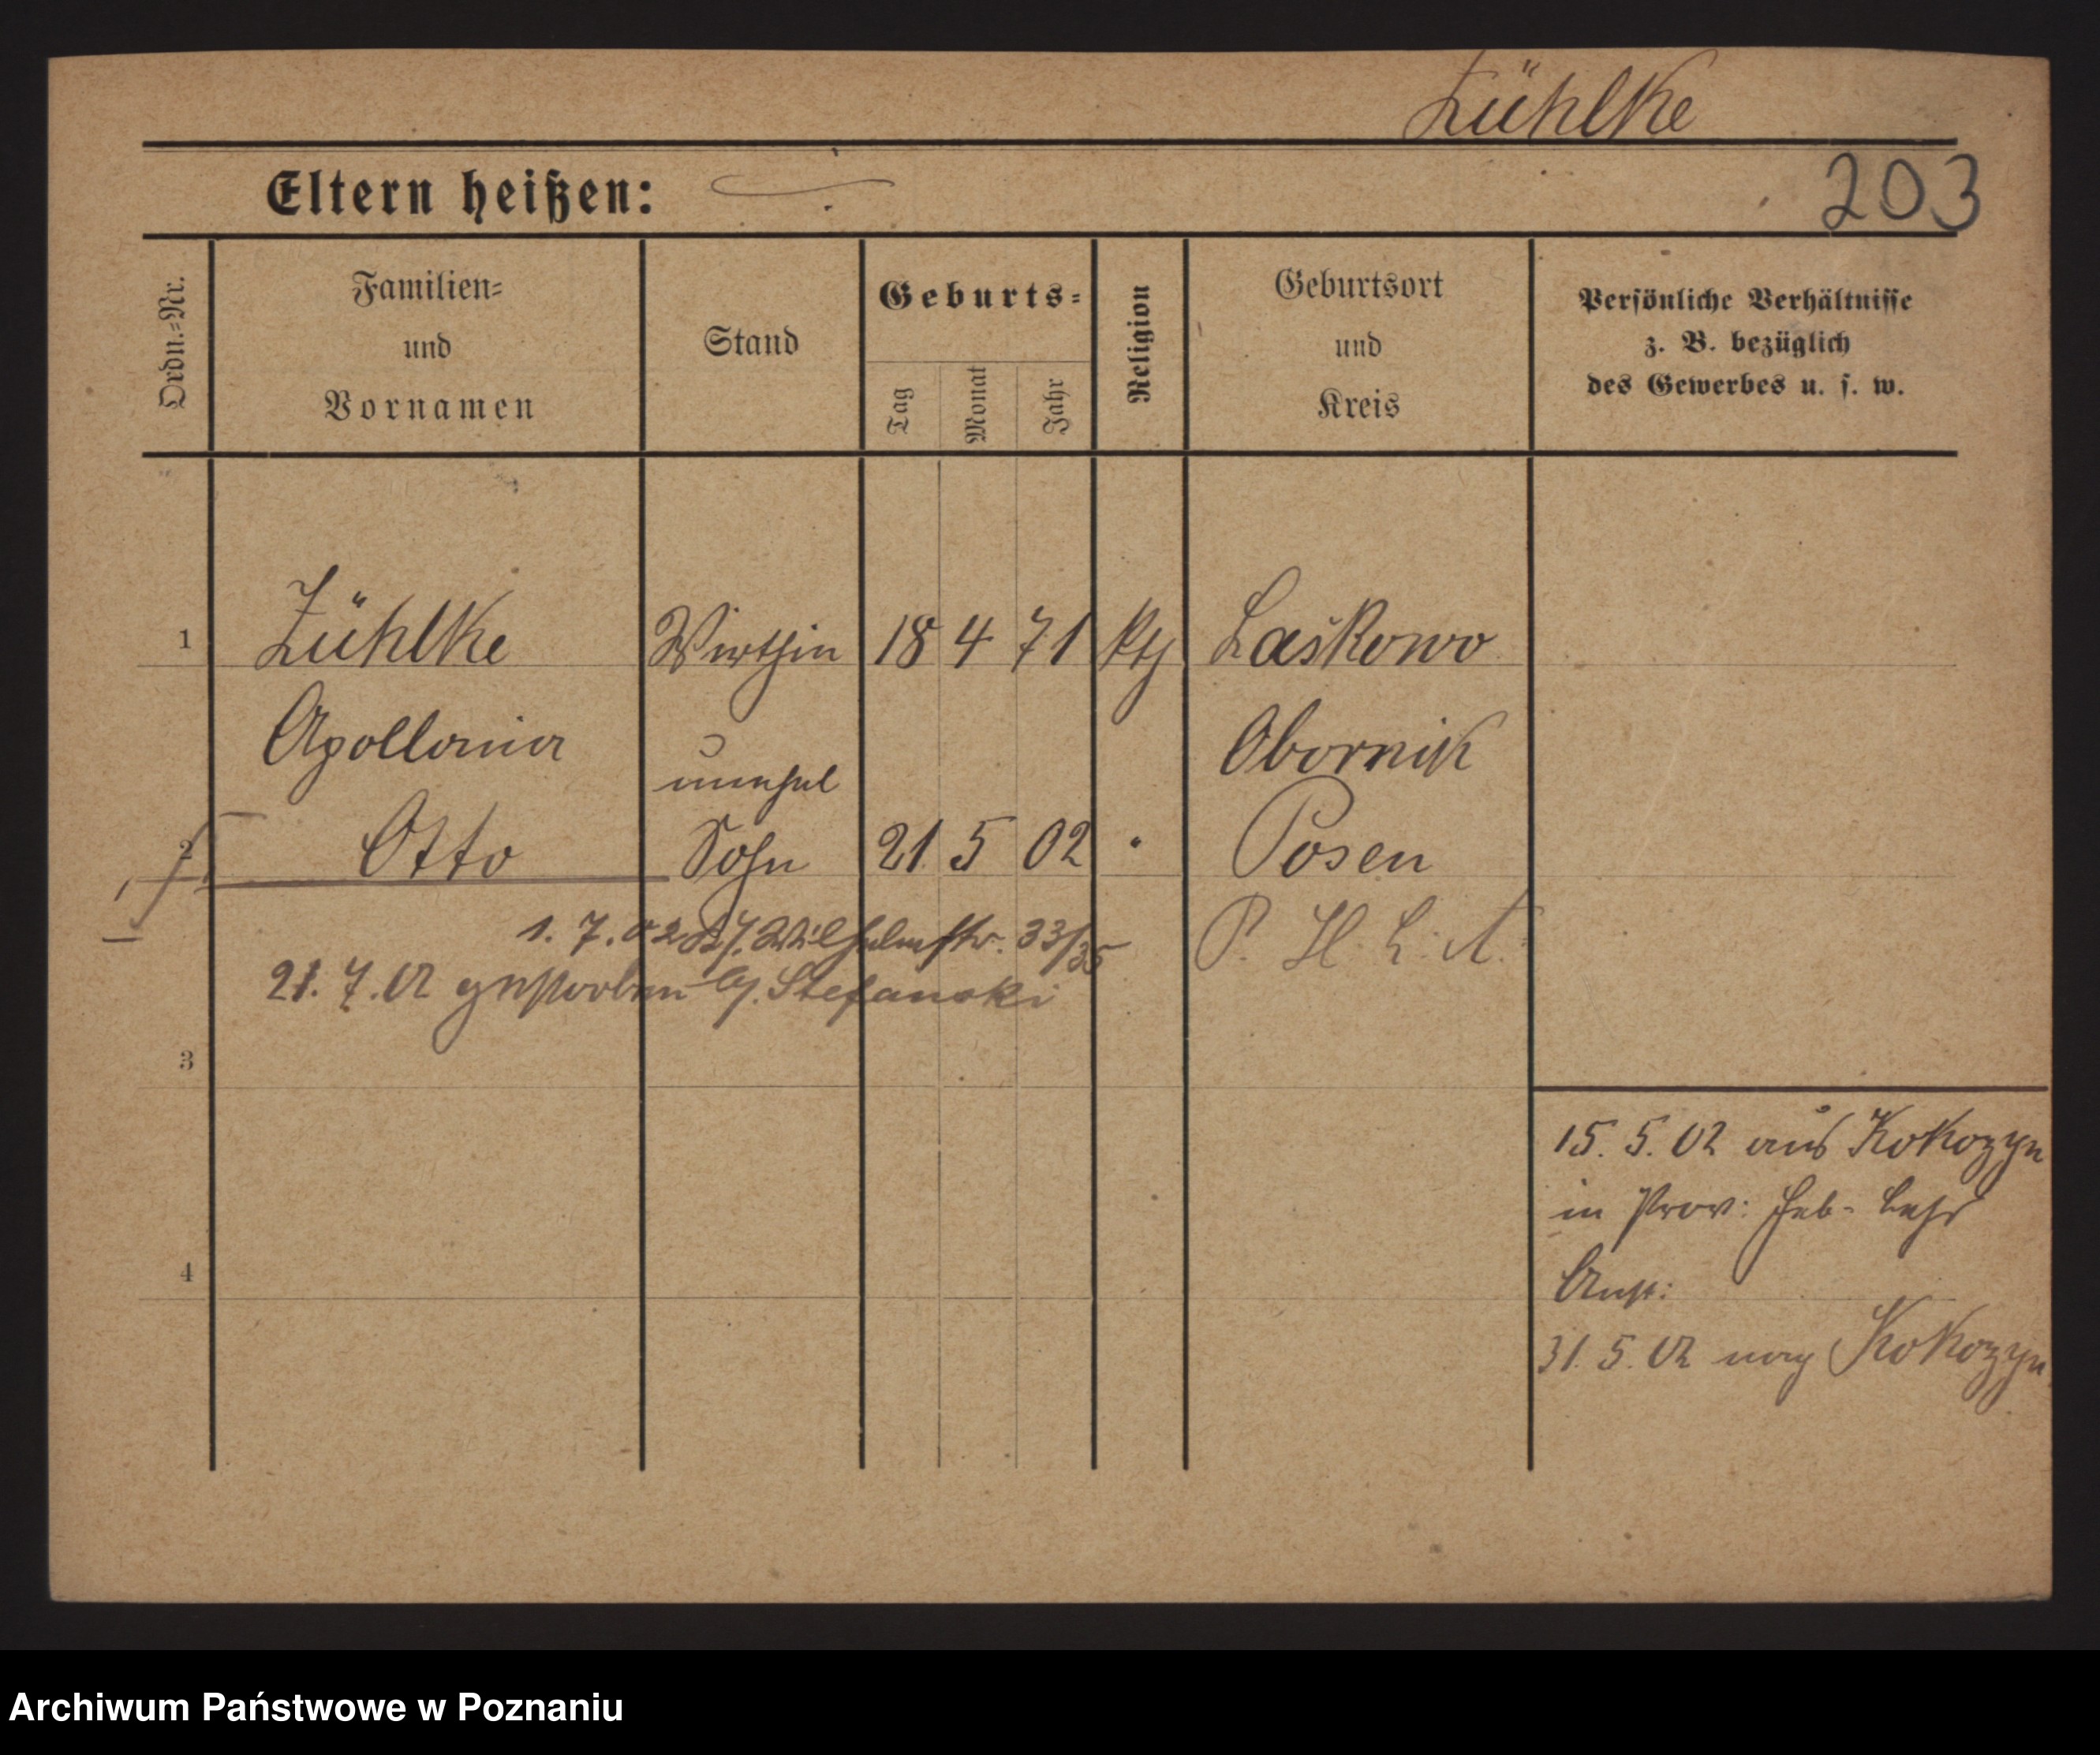 Zühlke
Eltern heißen:
203
Ordn.=Nr.
Familien=
und
Vornamen
Stand
Geburts=
Tag
Monat
Jahr
Religion
Geburtsort
und
Kreis
Persönliche Verhältnisse
z. B. bezüglich
des Gewerbes u. s. w.
1 Zühlke Wirthin 18 4 71 kth Laskowo
Apollonia Obornik
unehel
2 Otto Sohn 21. 5 02 " Posen
P. H. L. A.
1. 7. 02 Wilhelmstr. 33/35
21. 7. 02 gestorben Stefanski
3
15. 5. 02 aus Kokozyn
in Prov: Heb- Lehr
Anst:
4
31. 5. 02 nach Kokozyn
Archiwum Państwowe w Poznaniu